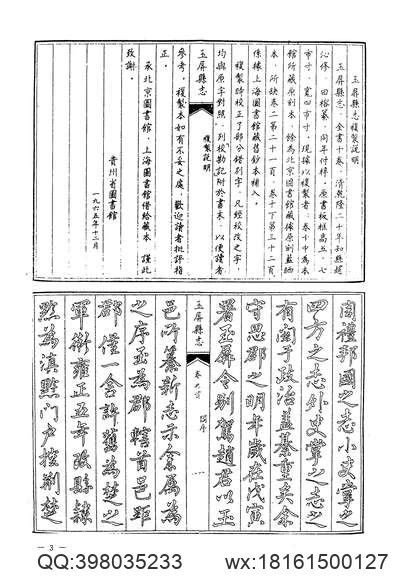 玉屏縣志複製說明
玉屏縣志，全書十卷，清乾隆二十年知縣趙
沁修，田榕纂，同年付梓。原書板框高五·七
市寸，寬四市寸，現據以複製者，卷十中為本
館所藏原刻本，餘為北京圖書館藏依原刻藍晒
本，所缺卷二第二十一頁，卷十下第三十二頁
係據上海圖書館藏舊鈔本補入。
複製時校正了部分錯別字，凡經校改之字，
均與原字對照，列校勘記附於書末，以便讀者
玉屏縣志
複製說明
參考。複製本如有不妥之處，歡迎讀者批評指
正。
承北京圖書館、上海圖書館借給藏本，謹此
致謝。
貴州省圖書館
一九六五年十二月
周禮邦國之志小史掌之
四方之志外史掌之志之
有關于政治益綦重矣余
守思郡之明年歲在戊寅
署玉屏令別駕趙君以玉
玉屏縣志
卷之首
序
一
邑所纂新志示余屬為
之序玉為郡轄首邑距
郡僅一舍許舊為楚之
軍衛雍正五年改縣隸
黔為滇黔門戶控荊楚
— 3 —
QQ:398035233
wx:18161500127